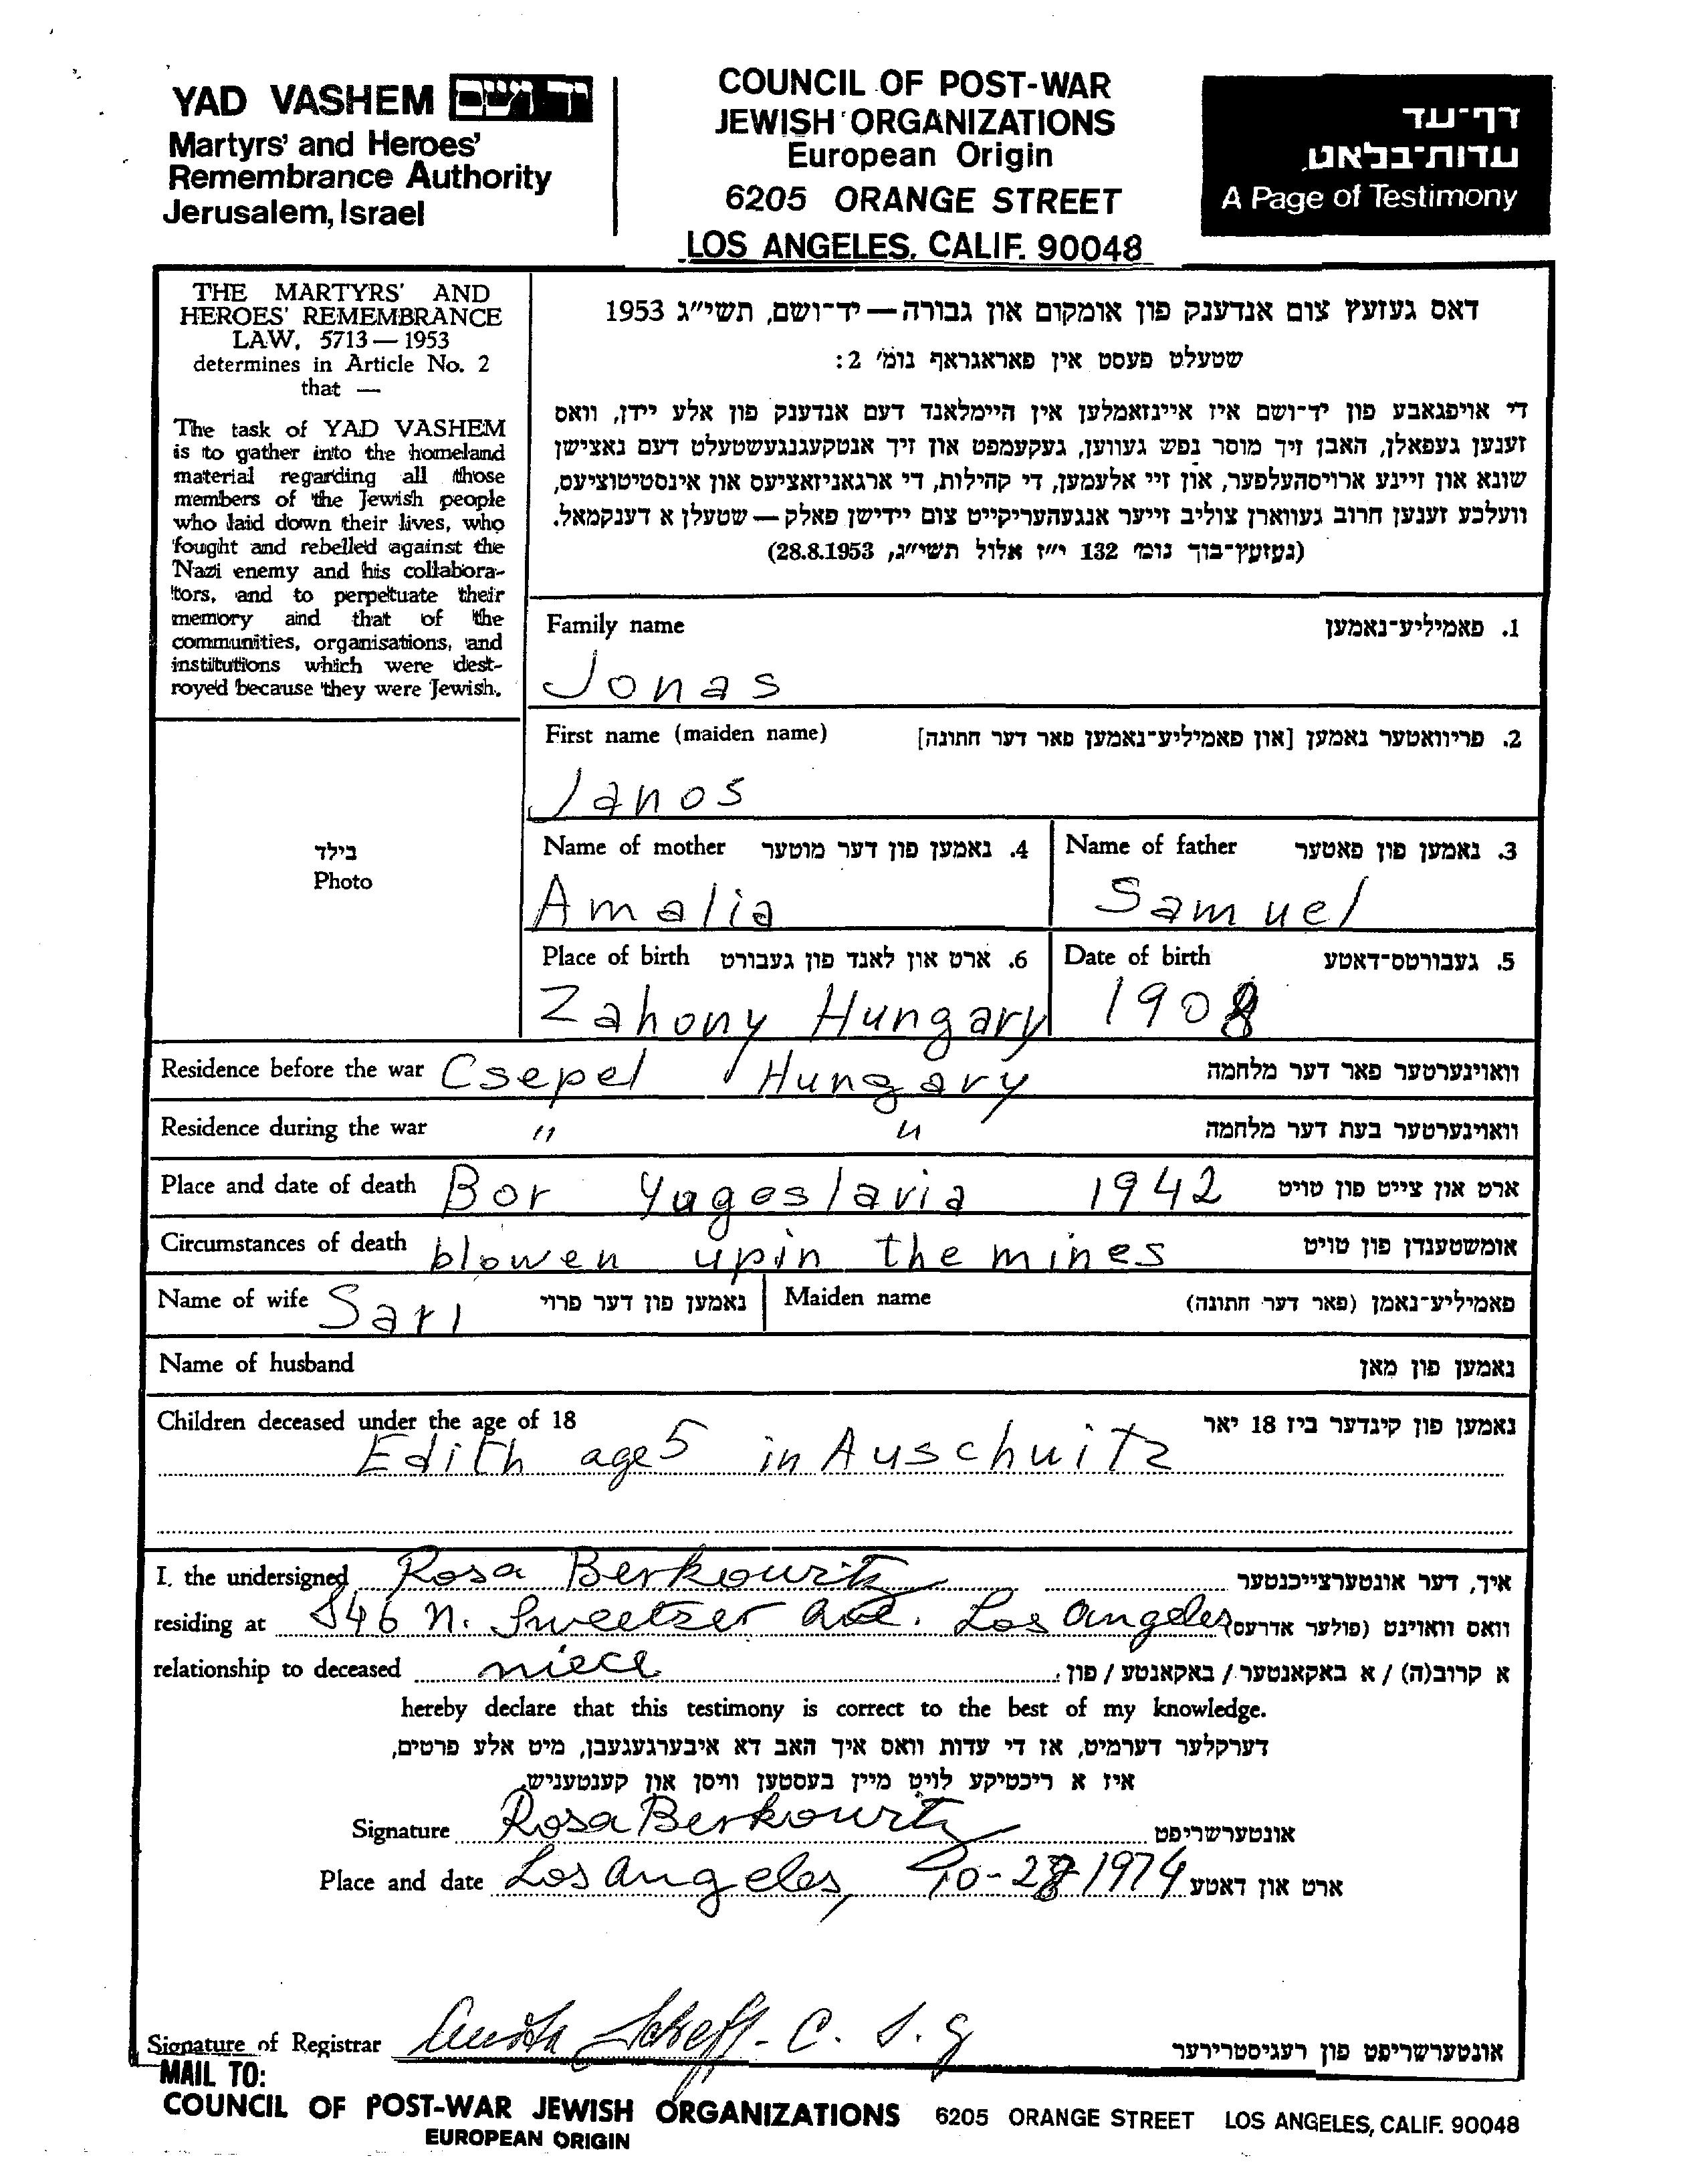 YAD VASHEM יד ושם
Martyrs' and Heroes'
Remembrance Authority
Jerusalem, Israel
COUNCIL OF POST-WAR
JEWISH ORGANIZATIONS
European Origin
6205 ORANGE STREET
LOS ANGELES, CALIF. 90048
דף־עד
עדות־בלאט
A Page of Testimony
THE MARTYRS' AND
HEROES' REMEMBRANCE
LAW, 5713—1953
determines in Article No. 2
that —
The task of YAD VASHEM
is to gather into the homeland
material regarding all those
members of the Jewish people
who laid down their lives, who
fought and rebelled against the
Nazi enemy and his collabora-
tors, and to perpetuate their
memory and that of the
communities, organisations, and
institutions which were dest-
royed because they were Jewish.
דאס געזעץ צום אנדענק פון אומקום און גבורה — יד־ושם, תשי"ג 1953
שטעלט פעסט אין פאראגראף נומ' 2:
די אויפגאבע פון יד־ושם איז איינזאמלען אין היימלאנד דעם אנדענק פון אלע יידן, וואס
זענען געפאלן, האבן זיך מוסר נפש געווען, געקעמפט און זיך אנטקעגנגעשטעלט דעם נאצישן
שונא און זיינע ארויסהעלפער, און זיי אלעמען, די קהילות, די ארגאניזאציעס און אינסטיטוציעס,
וועלכע זענען חרוב געווארן צוליב זייער אנגעהעריקייט צום יידישן פאלק — שטעלן א דענקמאל.
(געזעץ־בוך נומ' 132 י"ז אלול תשי"ג, 28.8.1953)
Family name 1. פאמיליע־נאמען
Jonas
First name (maiden name) 2. פריוואטער נאמען [און פאמיליע־נאמען פאר דער חתונה]
Janos
Name of mother 4. נאמען פון דער מוטער Name of father 3. נאמען פון פאטער
Amalia Samuel
Place of birth 6. ארט און לאנד פון געבורט Date of birth 5. געבורטס־דאטע
Zahony Hungary 1908
Residence before the war Csepel Hungary וואוינערטער פאר דער מלחמה
Residence during the war " " וואוינערטער בעת דער מלחמה
Place and date of death Bor Yugoslavia 1942 ארט און צייט פון טויט
Circumstances of death blowen upin the mines אומשטענדן פון טויט
Name of wife Sari נאמען פון דער פרוי Maiden name פאמיליע־נאמן (פאר דער חתונה)
Name of husband נאמען פון מאן
Children deceased under the age of 18 נאמען פון קינדער ביז 18 יאר
Edith age 5 in Auschuitz
Photo בילד
I, the undersigned Rosa Berkowitz איך, דער אונטערצייכנטער
residing at 846 N. Sweetser ave. Los Angeles וואס וואוינט (פולער אדרעס)
relationship to deceased niece א קרוב(ה) / א באקאנטער / באקאנטע / פון
hereby declare that this testimony is correct to the best of my knowledge.
דערקלער דערמיט, אז די עדות וואס איך האב דא איבערגעגעבן, מיט אלע פרטים,
איז א ריכטיקע לויט מיין בעסטען וויסן און קענטעניש.
Signature Rosa Berkowitz אונטערשריפט
Place and date Los Angeles, 10-28-1974 ארט און דאטע
Signature of Registrar אונטערשריפט פון רעגיסטרירער
MAIL TO:
COUNCIL OF POST-WAR JEWISH ORGANIZATIONS 6205 ORANGE STREET LOS ANGELES, CALIF. 90048
EUROPEAN ORIGIN